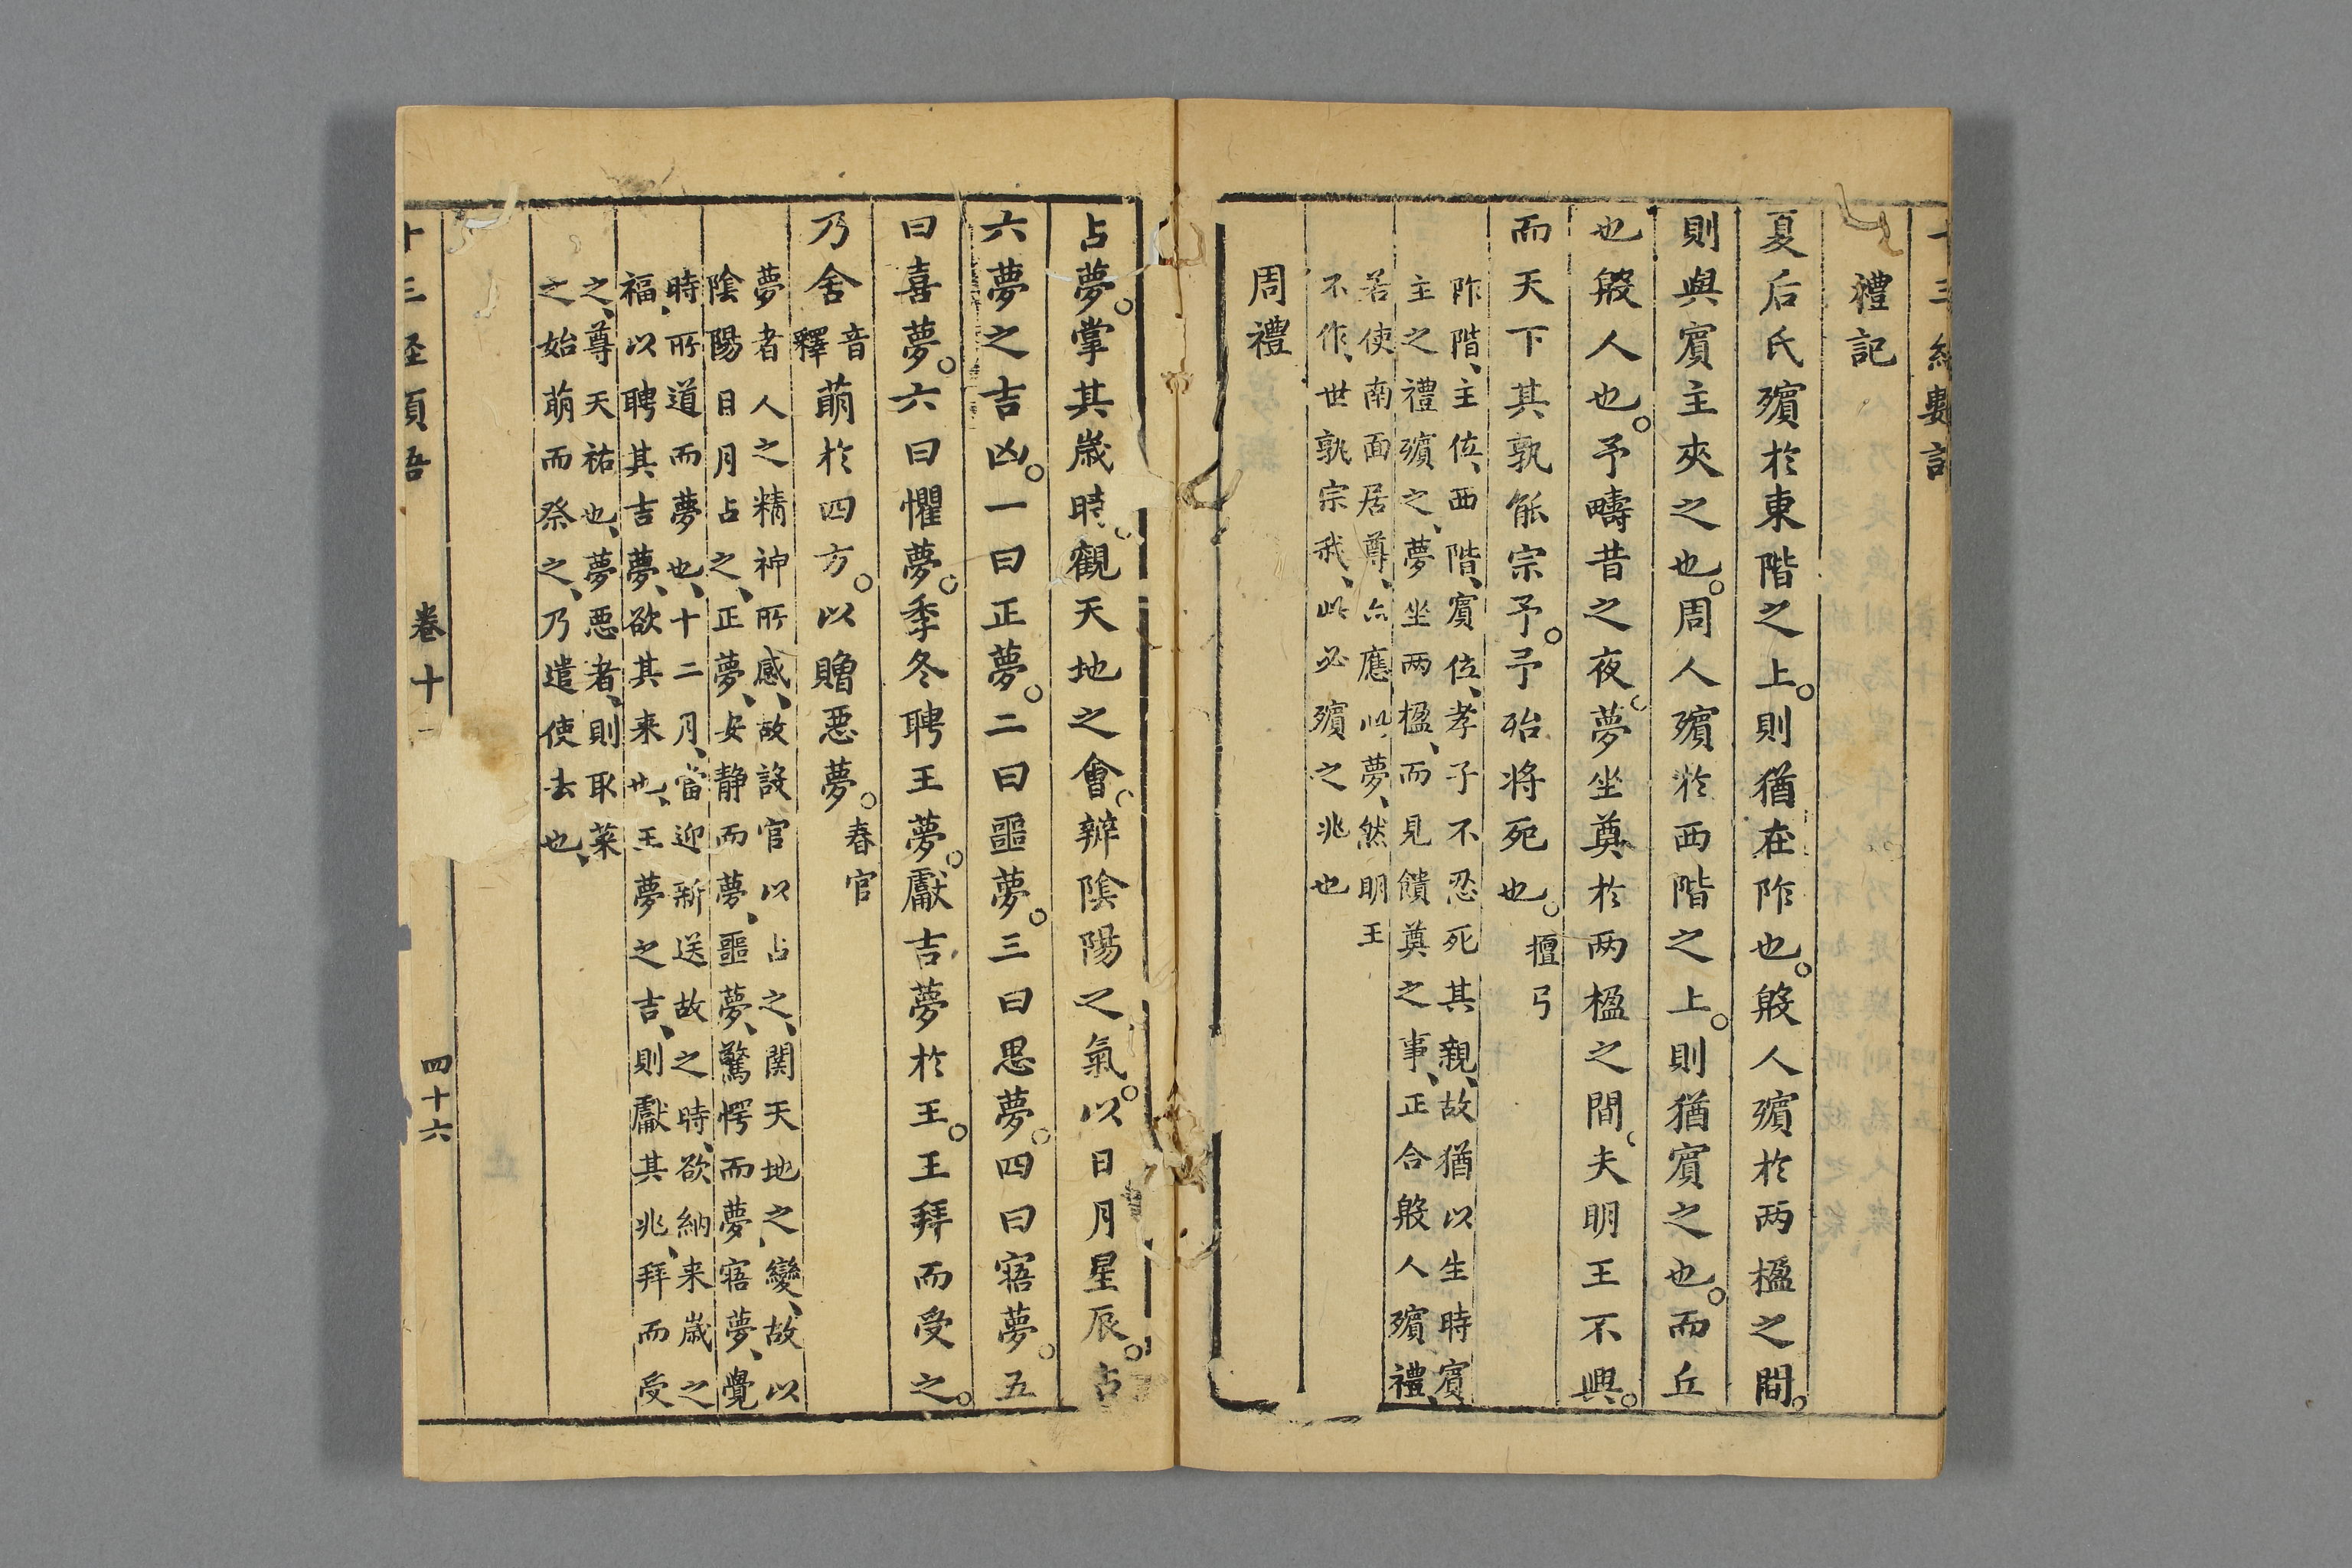 禮記
夏后氏殯於東階之上。則猶在阼也。殷人殯於两楹之間。
則與賓主夾之也。周人殯於西階之上。則猶賓之也。而丘
也殷人也。予疇昔之夜。夢坐奠於两楹之間。夫明王不興。
而天下其孰能宗予。予殆将死也。檀弓
阼階、主位、西階、賓位、孝子不忍死其親、故猶以生時賓
主之禮殯之、夢坐两楹、而見饋奠之事、正合殷人殯禮、
若使南面居尊、亦應此夢、然明王
不作、世孰宗我、此必殯之兆也
周禮
占夢。掌其歲時。觀天地之會。辨陰陽之氣。以日月星辰。占
六夢之吉凶。一曰正夢。二曰噩夢。三曰思夢。四曰寤夢。五
曰喜夢。六曰懼夢。季冬聘王夢。獻吉夢於王。王拜而受之。
乃舍音釋萌於四方。以贈惡夢。春官
夢者人之精神所感、故設官以占之、関天地之變、故以
陰陽日月占之、正夢、安静而夢、噩夢、驚愕而夢、寤夢、覺
時所道而夢也、十二月、當迎新送故之時、欲納来歲之
福、以聘其吉夢、欲其来也、王夢之吉、則獻其兆、拜而受
之、尊天祐也、夢惡者、則取菜
之始萌而祭之、乃遣使去也、
卷十
四十六